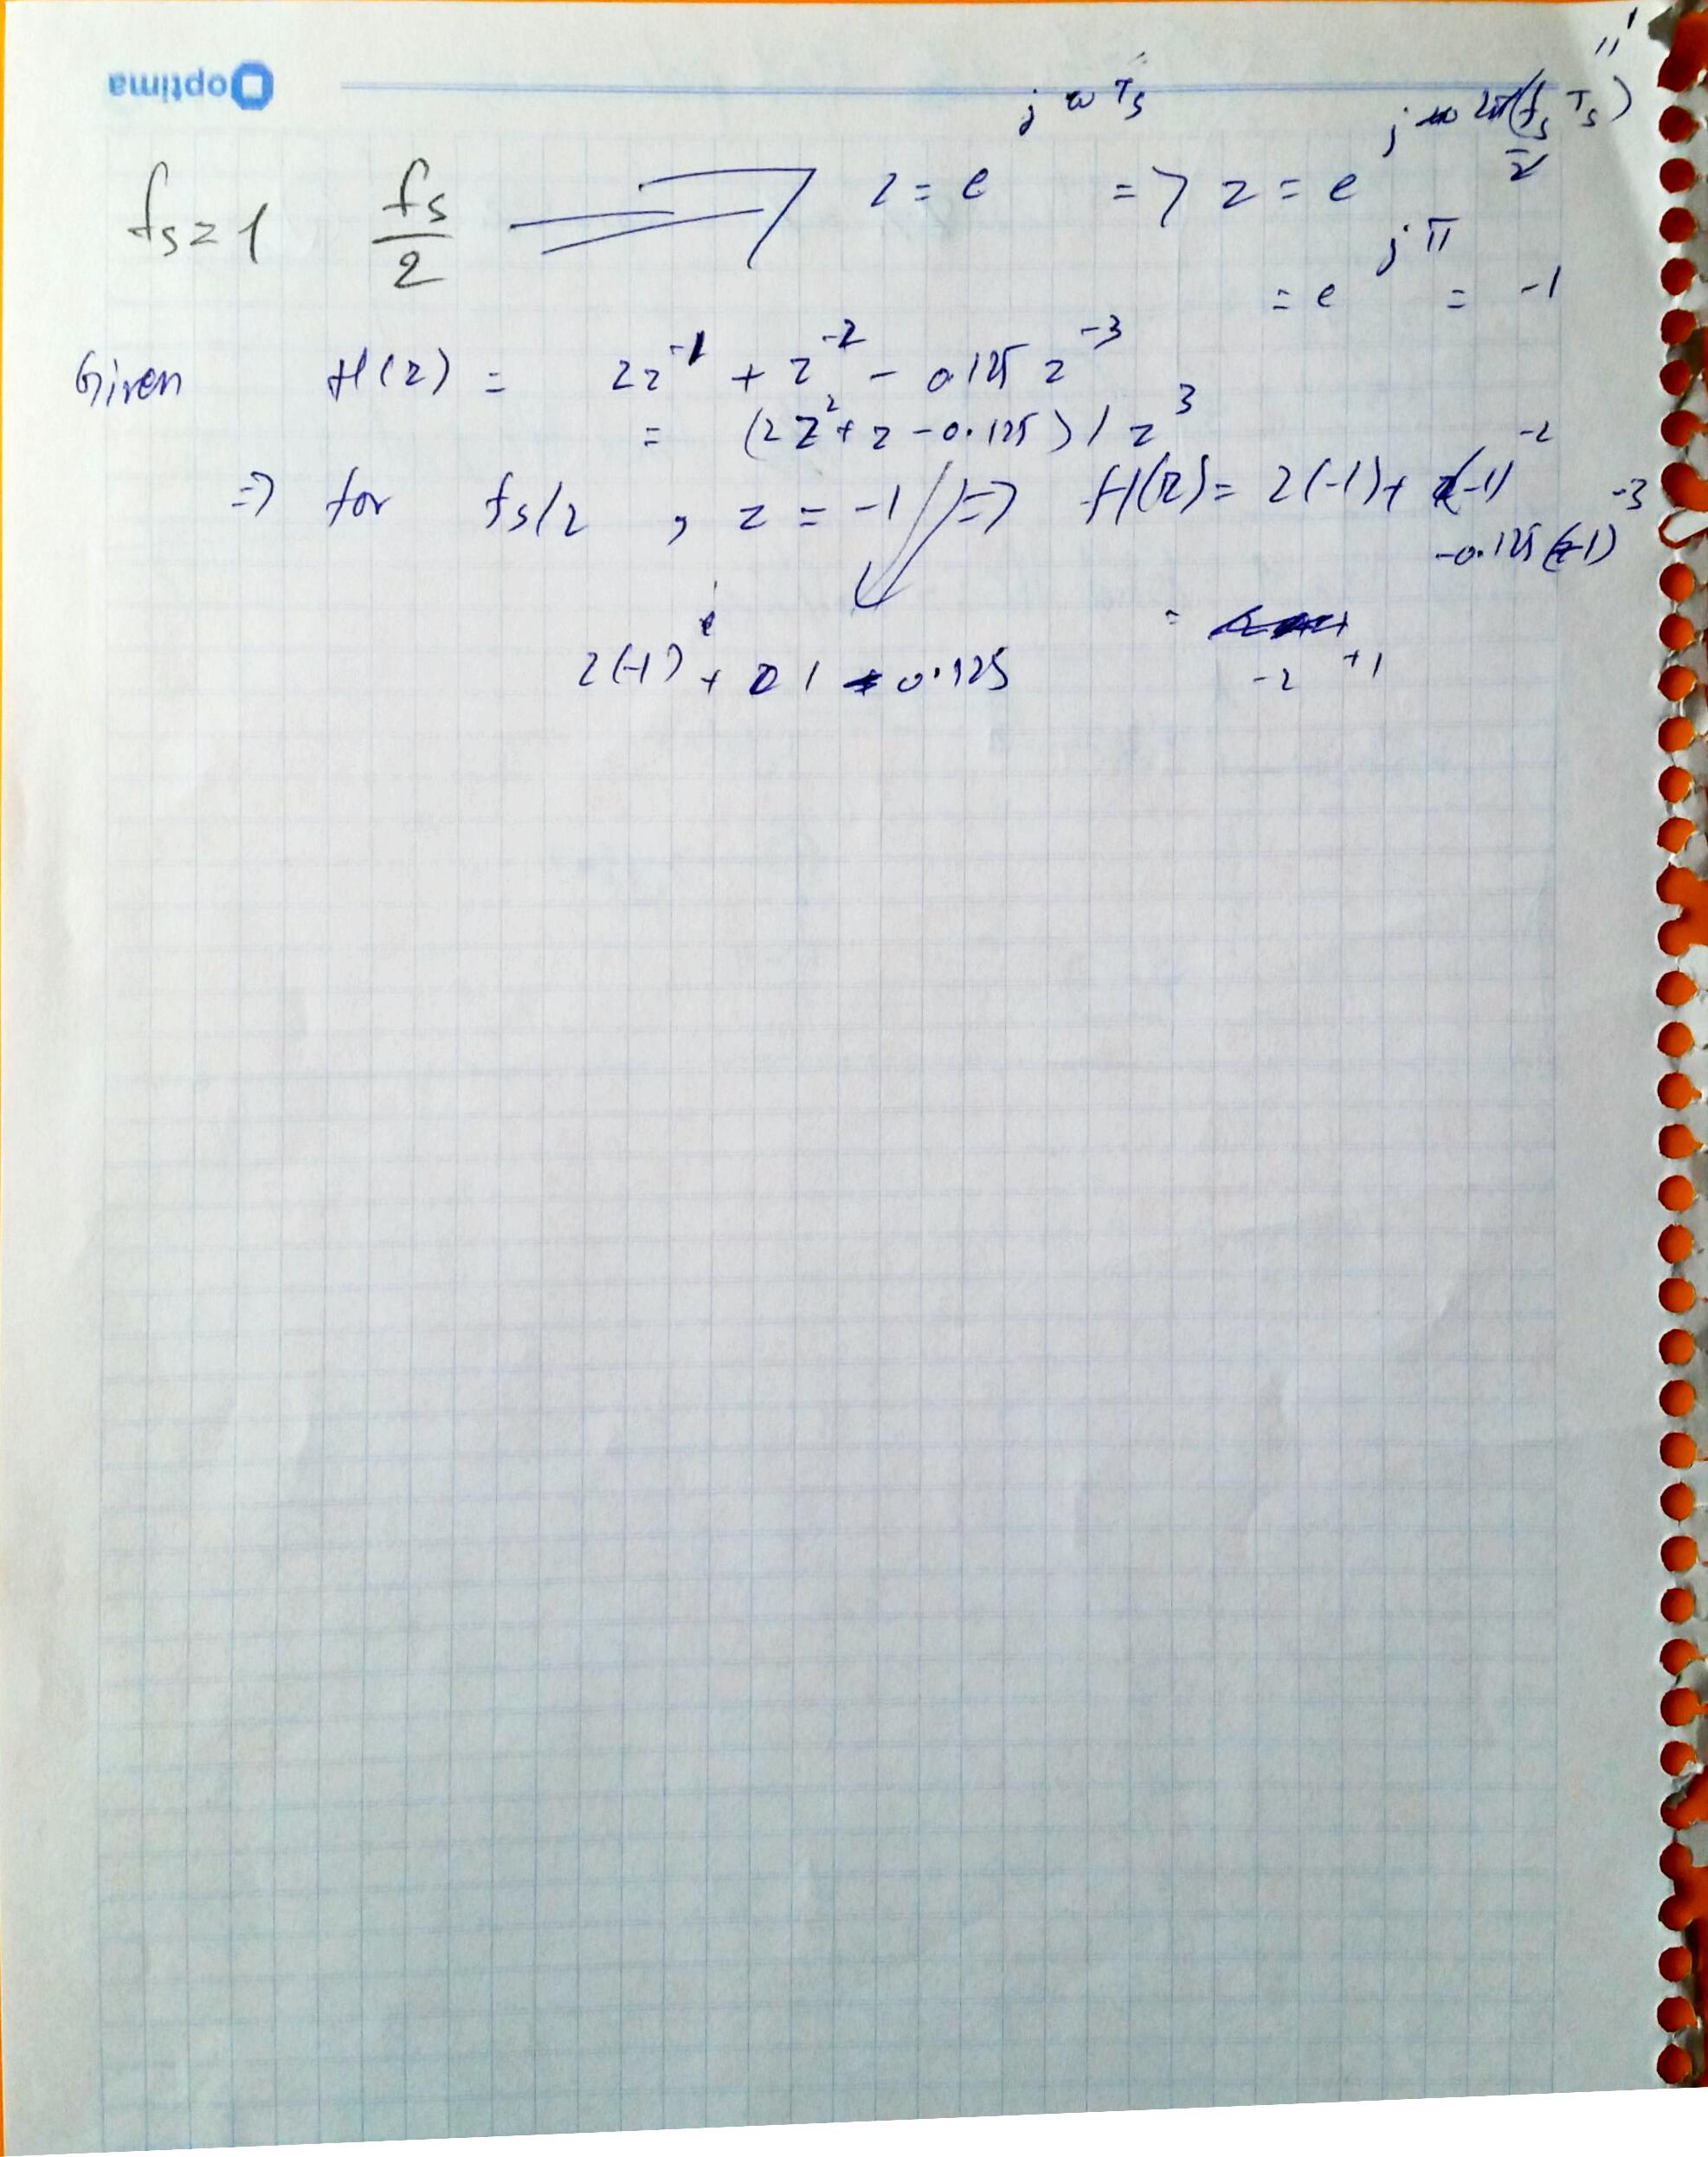 optima
fs=1 fs/2 z = e^{jωTs} => z = e^{j2π(fs/2 Ts)} "1
= e^{jπ} = -1
Given H(z) = 2z^{-1} + z^{-2} - 0.125 z^{-3}
= (2z^2 + z - 0.125) / z^3
=> for fs/2 , z = -1 => H(z) = 2(-1) + (-1)^{-2}
-0.125(-1)^{-3}
= -2 +1
2(-1) + 1 + 0.125